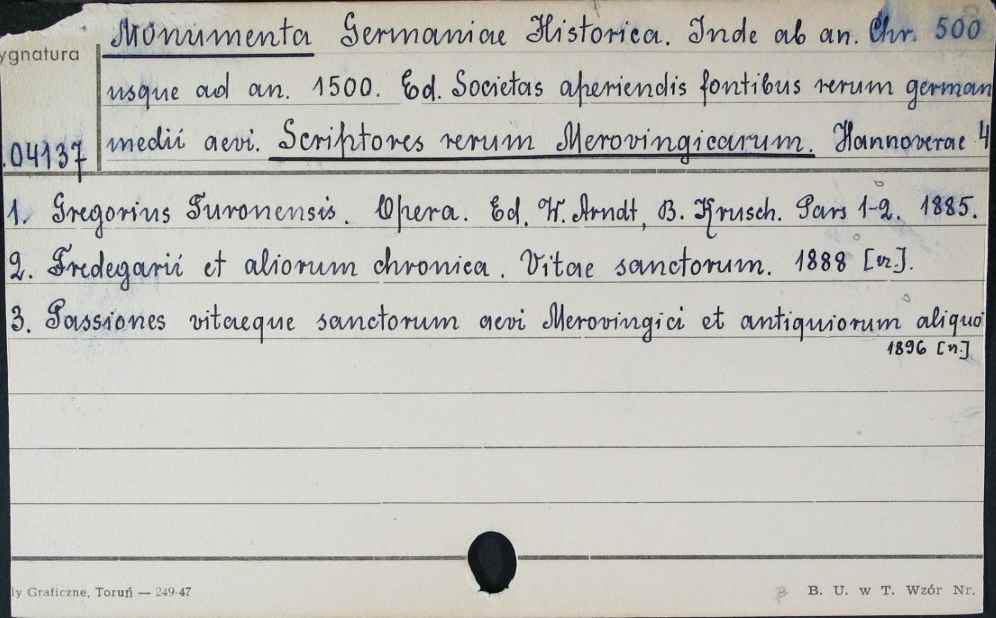 Monumenta Germaniae Historica. Inde ab an. Chr. 500
ygnatura
usque ad an. 1500. Ed. Societas aperiendis fontibus rerum german
.04137
medii aevi. Scriptores rerum Merovingicarum. Hannoverae 4
1. Gregorius Turonensis. Opera. Ed. W. Arndt, B. Krusch. Pars 1-2. 1885.
2. Fredegarii et aliorum chronica. Vitae sanctorum. 1888 [].
3. Passiones vitaeque sanctorum aevi Merovingici et antiquiorum aliquo
1896 []
ly Graficzne, Toruń — 249-47
B. U. w T. Wzór Nr.